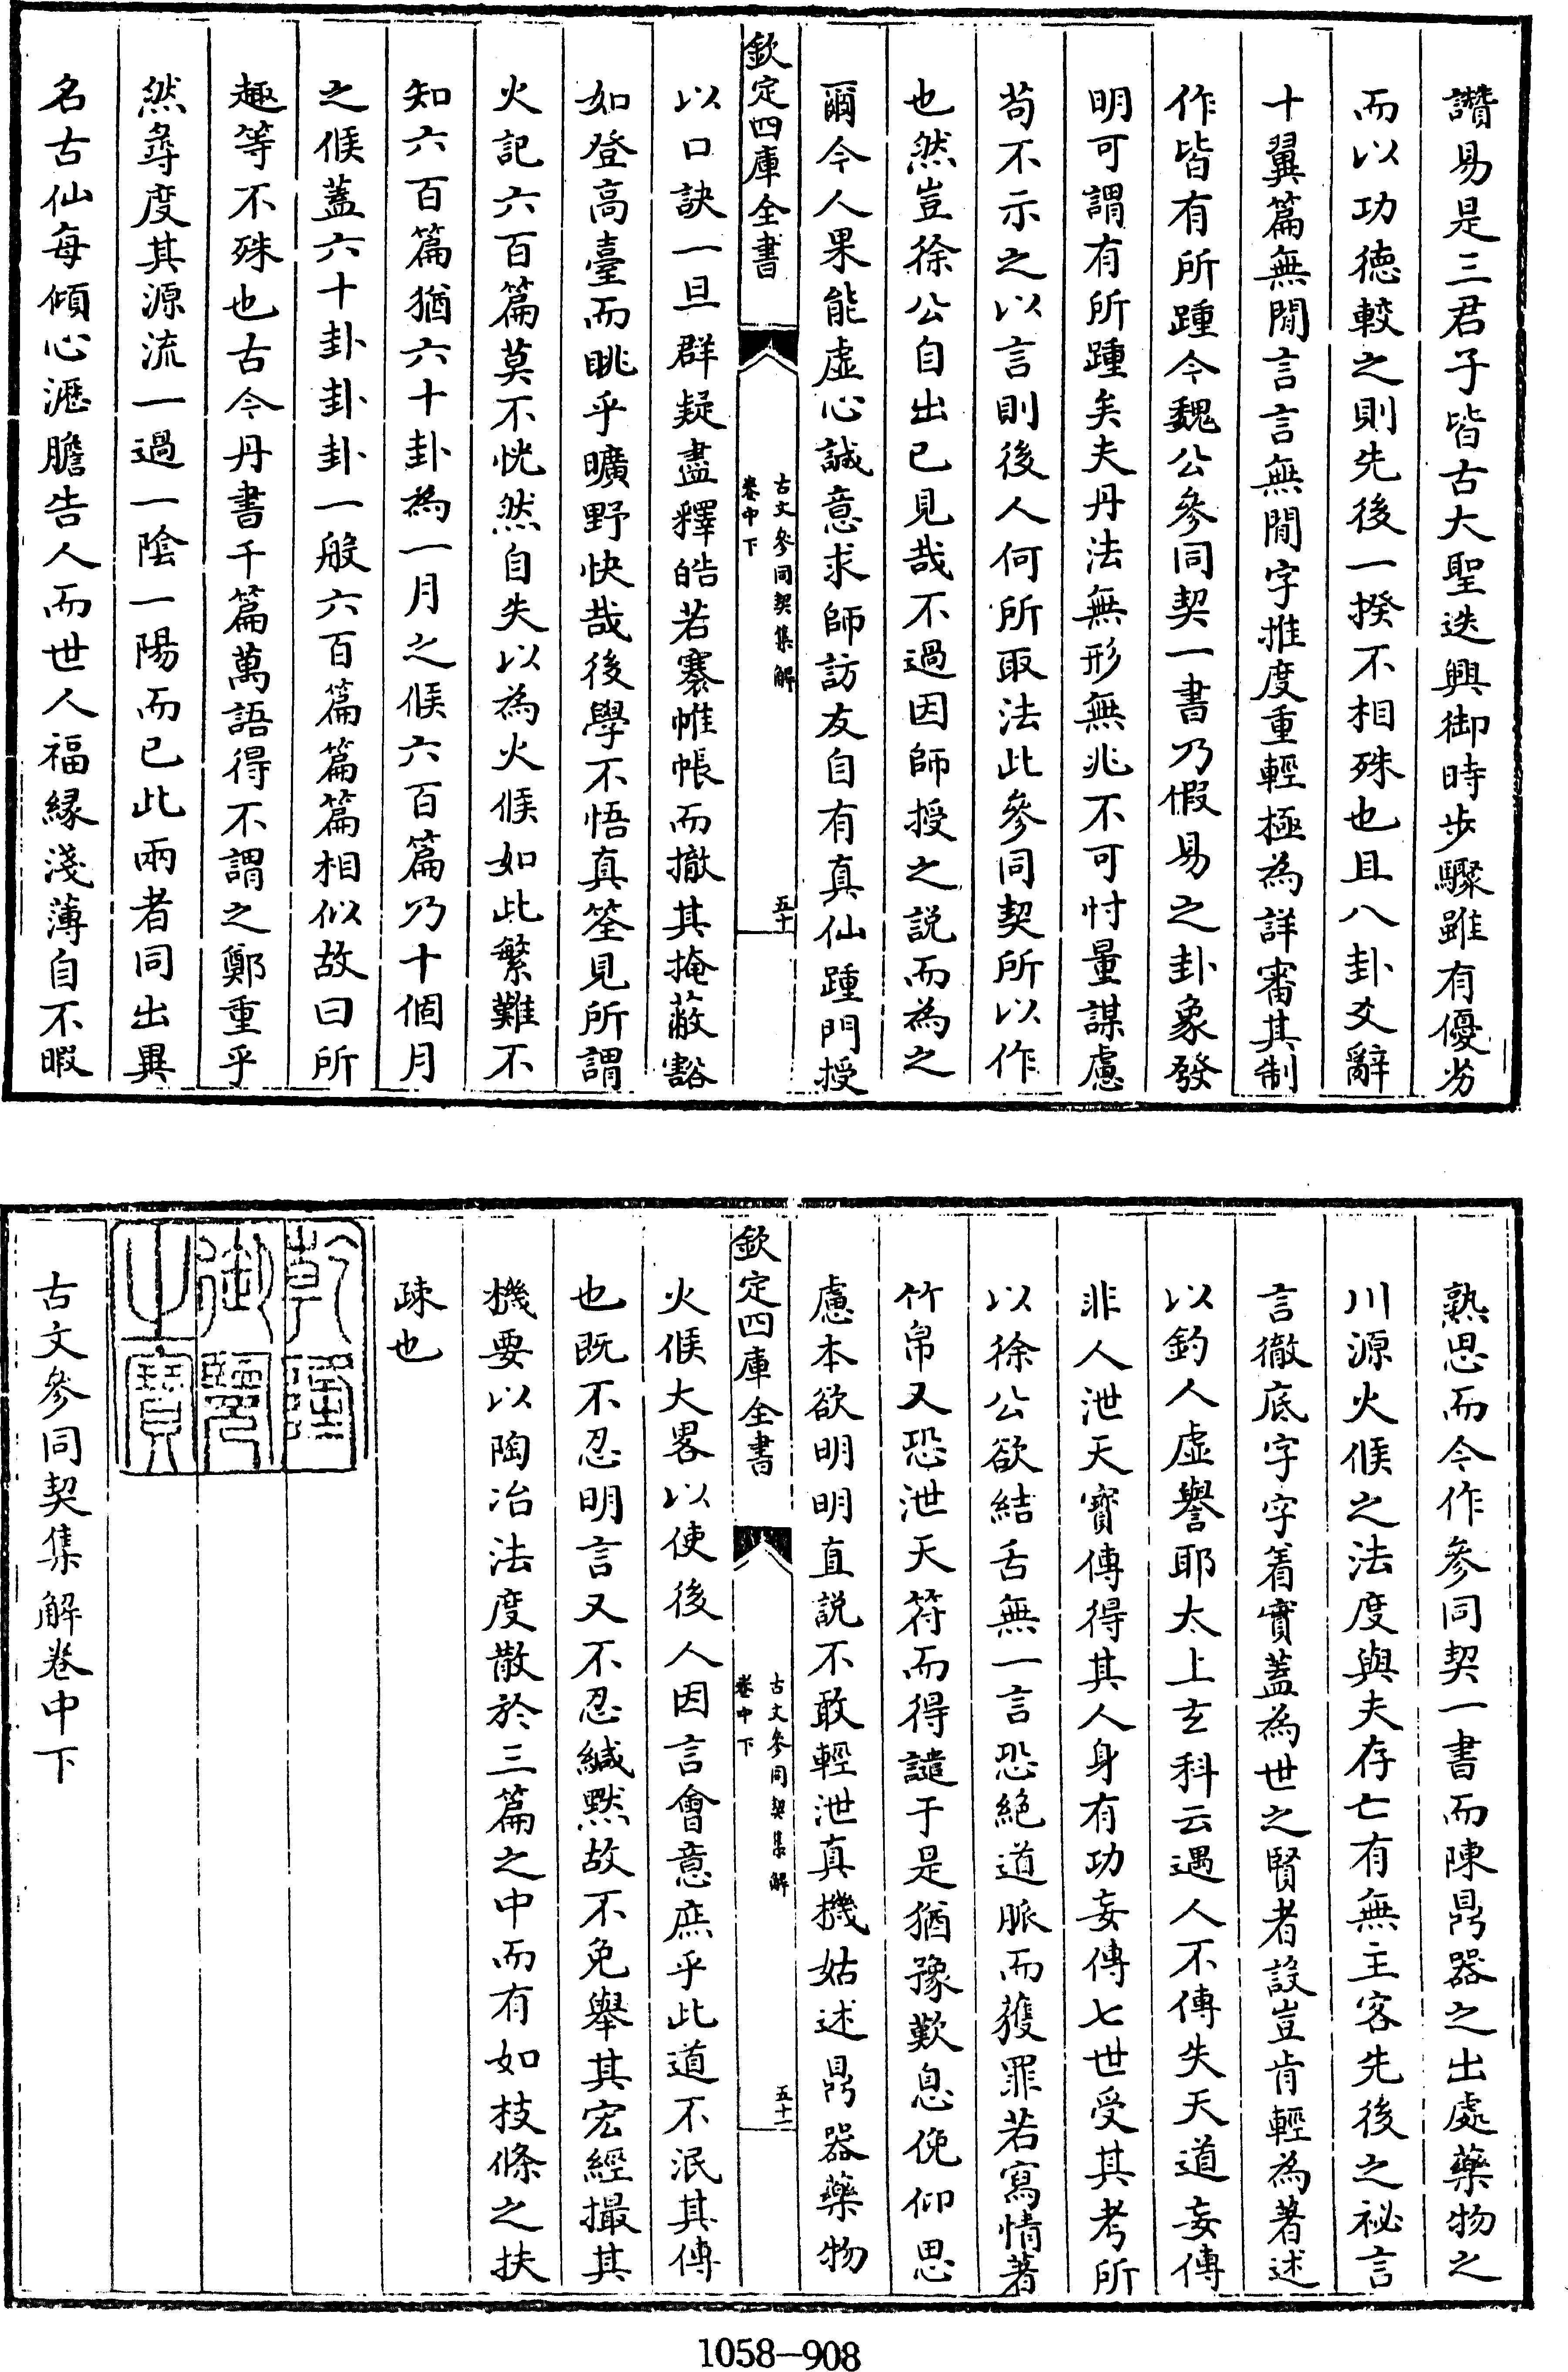 讚易是三君子皆古大聖迭興御時步驟雖有優劣
而以功德較之則先後一揆不相殊也且八卦爻辭
十翼篇無閒言言無閒字推度重輕極為詳審其制
作皆有所踵今魏公參同契一書乃假易之卦象發
明可謂有所踵矣夫丹法無形無兆不可忖量謀慮
苟不示之以言則後人何所取法此參同契所以作
也然豈徐公自出已見哉不過因師授之説而為之
爾今人果能虛心誠意求師訪友自有真仙踵門授
欽定四庫全書
古文參同契集解
卷中下
五十
以口訣一旦群疑盡釋皓若褰帷帳而撤其掩蔽豁
如登高臺而眺乎曠野快哉後學不悟真筌見所謂
火記六百篇莫不恍然自失以為火候如此繁難不
知六百篇猶六十卦為一月之候六百篇乃十個月
之候蓋六十卦卦卦一般六百篇篇篇相似故曰所
趣等不殊也古今丹書千篇萬語得不謂之鄭重乎
然尋度其源流一過一陰一陽而已此兩者同出異
名古仙每傾心瀝膽告人而世人福緣淺薄自不暇
熟思而今作參同契一書而陳鼎器之出處藥物之
川源火候之法度與夫存亡有無主客先後之祕言
言徹底字字着實蓋為世之賢者設豈肯輕為著述
以釣人虛譽耶太上玄科云遇人不傳失天道妄傳
非人泄天寳傳得其人身有功妄傳七世受其考所
以徐公欲結舌無一言恐絕道脈而獲罪若寫情著
竹帛又恐泄天符而得譴于是猶豫歎息俛仰思
慮本欲明明直説不敢輕泄真機姑述鼎器藥物
欽定四庫全書
古文參同契集解
卷中下
五十一
火候大畧以使後人因言會意庶乎此道不泯其傳
也既不忍明言又不忍緘黙故不免舉其宏經撮其
機要以陶冶法度散於三篇之中而有如枝條之扶
疎也
乾隆御覽之寶
古文參同契集解卷中下
1058-908